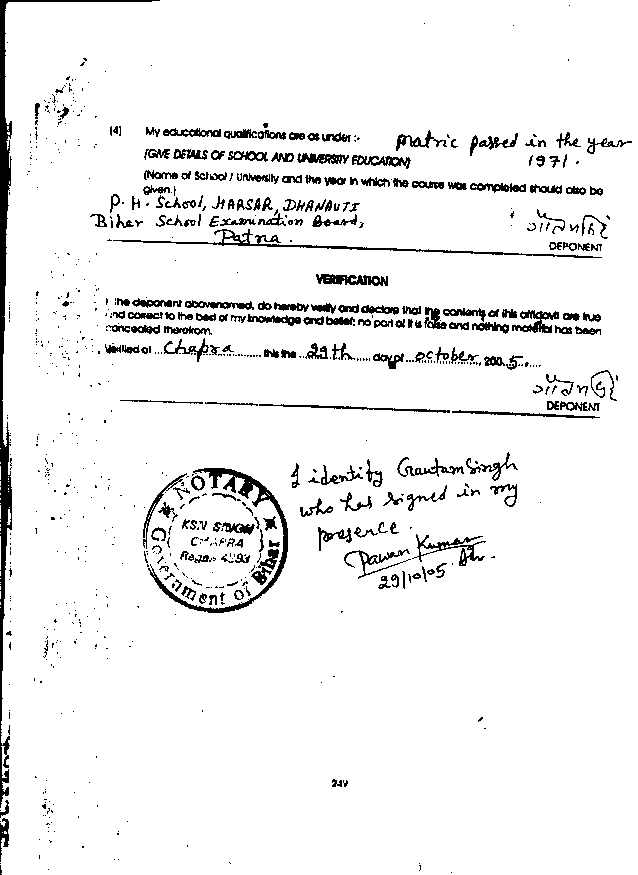 (4) My educational qualifications are as under :- Matric passed in the year
(GIVE DETAILS OF SCHOOL AND UNIVERSITY EDUCATION) 1971.
(Name of School / University and the year in which the course was completed should also be
given.)
P. H. School, HARSAR, DHANAUTI
Bihar School Examination Board,
Patna.
DEPONENT
VERIFICATION
I the deponent abovenamed, do hereby verify and declare that the contents of this affidavit are true
and correct to the best of my knowledge and belief; no part of it is false and nothing material has been
concealed therefrom.
Verified at ...Chapra............ this the ...29th...... day of ...october..., 200.5......
DEPONENT
I identify Gautam Singh
who has signed in my
presence.
Pawan Kumar
29/10/05
NOTARY
KSN SINGH
CHAPRA
Government of Bihar
249